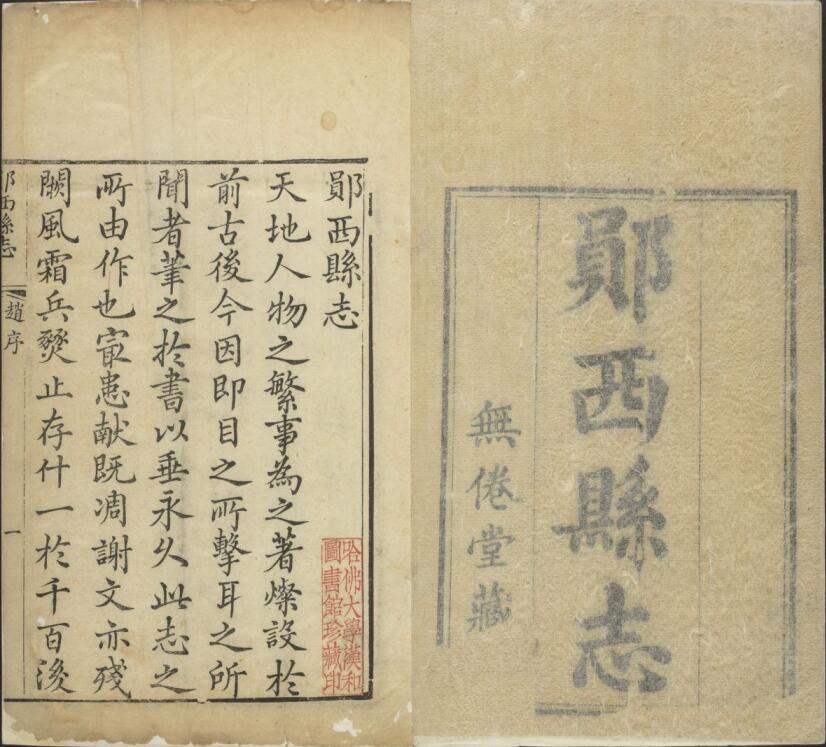 鄖西縣志
無倦堂藏
鄖西縣志
天地人物之繁事為之著燦設於
前古後今因即目之所擊耳之所
聞者筆之於書以垂永久此志之
所由作也寔悤献既凋謝文亦殘
闕風霜兵燹止存什一於千百後
鄖西縣志
趙序
一
哈佛大學漢和
圖書館珍藏印